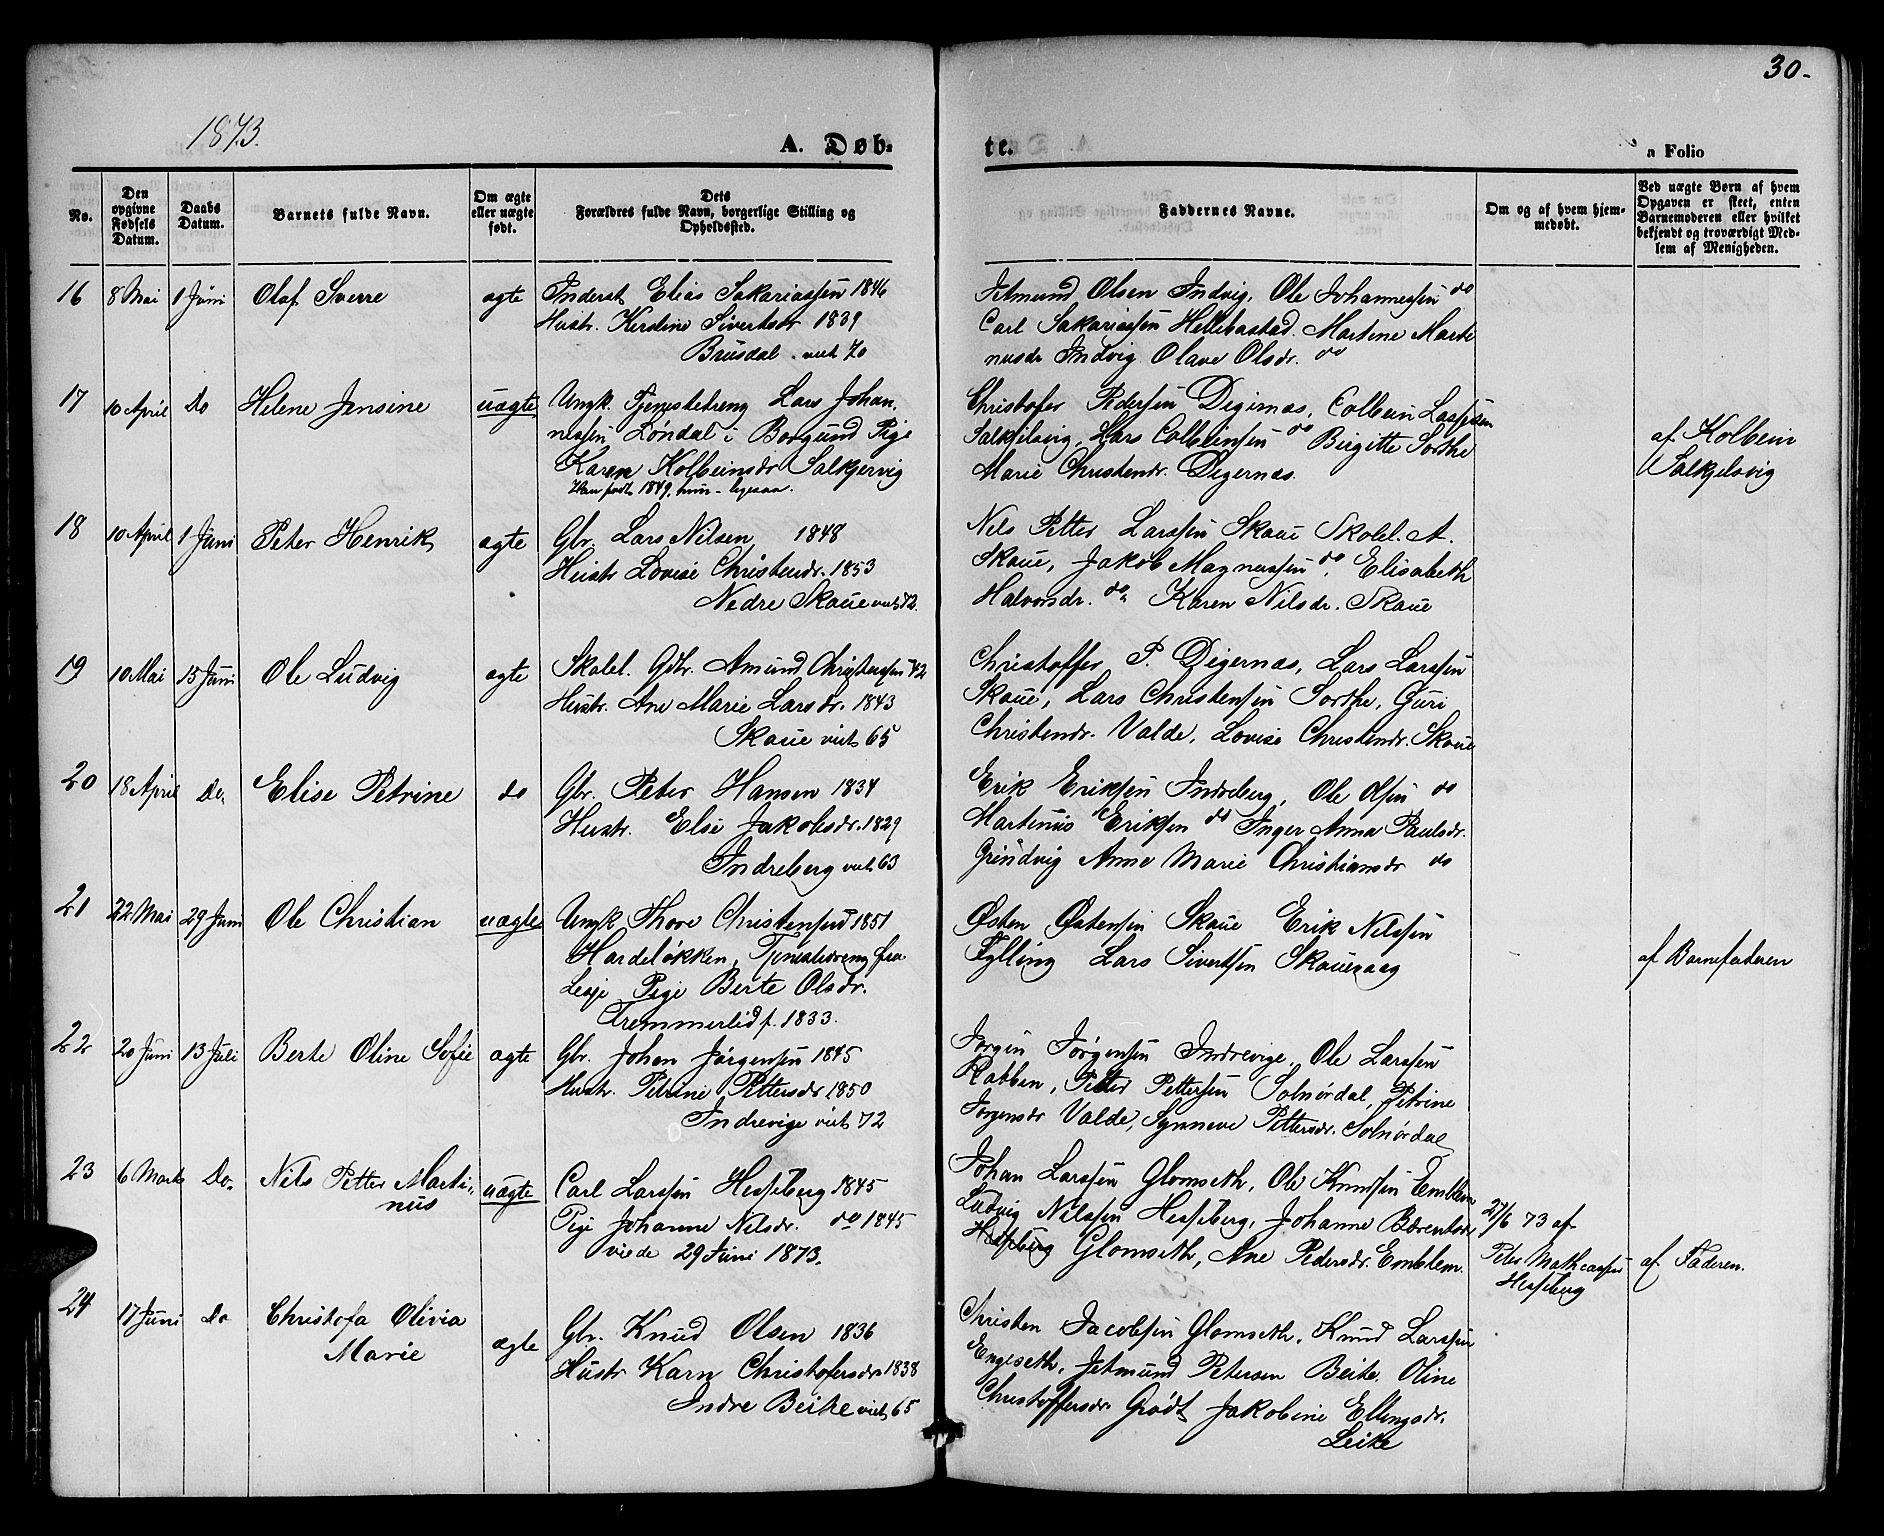 30-
1873.
A. Døb-
te.
a Folio
No.
Den opgivne Fødsels Datum.
Daabs Datum.
Barnets fulde Navn.
Om ægte eller uægte født.
Dets Forældres fulde Navn, borgerlige Stilling og Opholdssted.
Faddernes Navne.
Om og af hvem hjemmedøbt.
Ved uægte Børn af hvem Opgaven er skeet, enten Barnemoderen eller hvilket bekjendt og troværdigt Medlem af Menigheden.
16 8 Mai 1 Juni Olaf Sverre ægte Inderst Elias Sakariassen 1846
Hustr. Kerdine Sivertsdr 1839
Brusdal viet 70
Jetmund Olsen Indvig, Ole Johannessen do
Carl Sakariassen Hellebastad. Martine Marti
nusdr Indvig Olave Olsdr. do
17 10 April Do Helene Jensine uægte Ungk. Tjenestedreng Lars Johan,
nessen Løndal i Borgund Pige
Karen Kolbeinsdr Salkjervig
Han født 1849. hun ligesaa.
Christofer Pedersen Degernæs, Colbein Larssen
Salkjelsvig, Lars Colbeinsen do Birgitte Sorthe
Marie Christendr. Degernæs.
af Kolbein
Salkjelsvig
18 10 April 1 Juni Peter Henrik ægte Gbr. Lars Nilsen 1848
Hustr Lovise Christendr. 1853
Nedre Skaue viet 72.
Nels Petter Larssen Skaue Skolel. A.
Skaue, Jakob Magnussen do, Elisabeth
Halvorsdr. do. Karen Nilsdr. Skaue
19 10 Mai 15 Juni Ole Ludvig ægte Skolel. Gdbr. Amund Christenssen 42
Hustr. Ane Marie Larsdr. 1843
Skaue viet 65
Christoffer P. Digernæs, Lars Larssen
Skaue, Lars Christensen Sorthe, Guri
Christendr. Valde, Lovise Christendr. Skaue
20 18 April Do. Elise Petrine do Gbr. Peter Hansen 1834
Hustr. Else Jakobsdr. 1829
Indreberg viet 63
Erik Eriksen Indreberg, Ole Olsen do
Martinus Eriksen do Inger Anna Paulsdr.
Grindvig Anne Marie Christiansdr do
21 22 Mai 29 Juni Ole Christian uægte Ungk Thore Christensen 1851
Hardeløkken, Tjenestedreng fra
Lesje Pige Berte Olsdr.
Tremmerlid f. 1833.
Østen Østensen Skaue Erik Nilssen
Fylling Lars Sivertsen Skauevaag
af Barnefaderen
22 20 Juni 13 Juli Berte Oline Sofie ægte Gbr. Johan Jørgensen 1845
Hustr. Petrine Pettersdr 1850
Indrevige viet 72
Jørgen Jørgensen Indrevige, Ole Larssen
Rabben, Petter Pettersen Solnørdal, Petrine
Jørgensdr Valde, Synneve Pettersdr. Solnørdal
23 6 Marts Do. Nils Petter Marti-
nus uægte Carl Larssen Hesseberg 1845
Pige Johanne Nilsdr. do 1845
viede 29 Juni 1873.
Johan Larssen Glomseth, Ole Knudsen Emblem
Ludvig Nilssen Hesseberg, Johanne Bærentsdr
Hesseberg Glomseth, Ane Pedersdr. Emblem.
27/6 73 af
Peter Mathiassen
Hesseberg
af Faderen.
24 17 Juni Do Christofa Olivia
Marie ægte Gbr. Knud Olsen 1836
Hustr Karn Christofersdr 1838
Indre Beite viet 65
Christen Jacobsen Glomseth, Knud Larssen
Engeseth, Jetmund Petersen Beite. Oline
Christoffersdr Grødt Jakobine Ellingsdr.
Leite